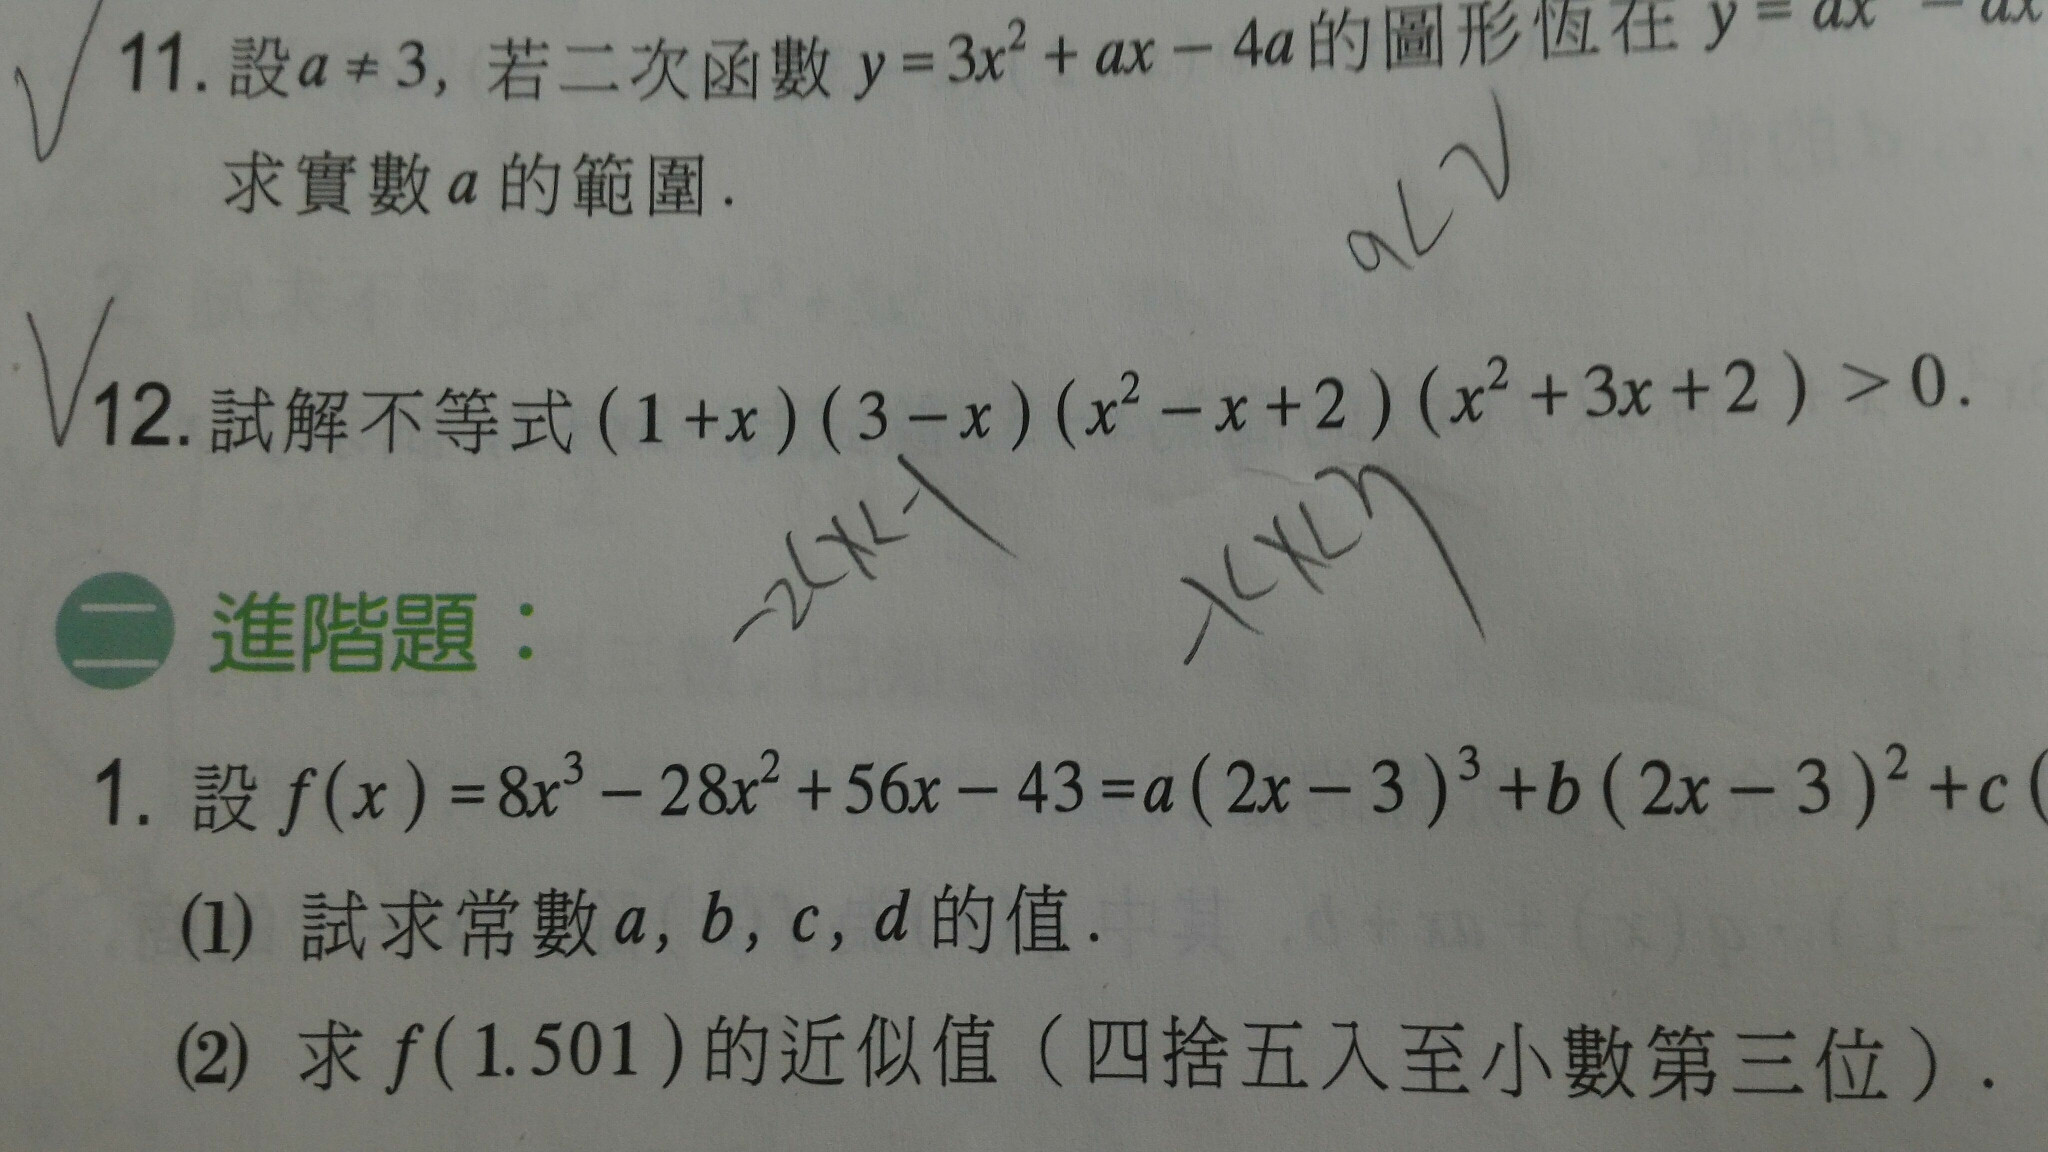 11. 設a ≠ 3, 若二次函數 y = 3x² + ax − 4a 的圖形恆在 y = ax² − ax
求實數 a 的範圍.
a<2
12. 試解不等式 ( 1 + x ) ( 3 − x ) ( x² − x + 2 ) ( x² + 3x + 2 ) > 0.
-2<x<-1
-1<x<3
二 進階題：
1. 設 f(x) = 8x³ − 28x² + 56x − 43 = a ( 2x − 3 )³ + b ( 2x − 3 )² + c (
(1) 試求常數 a, b, c, d 的值.
(2) 求 f ( 1.501 ) 的近似值 ( 四捨五入至小數第三位 ) .